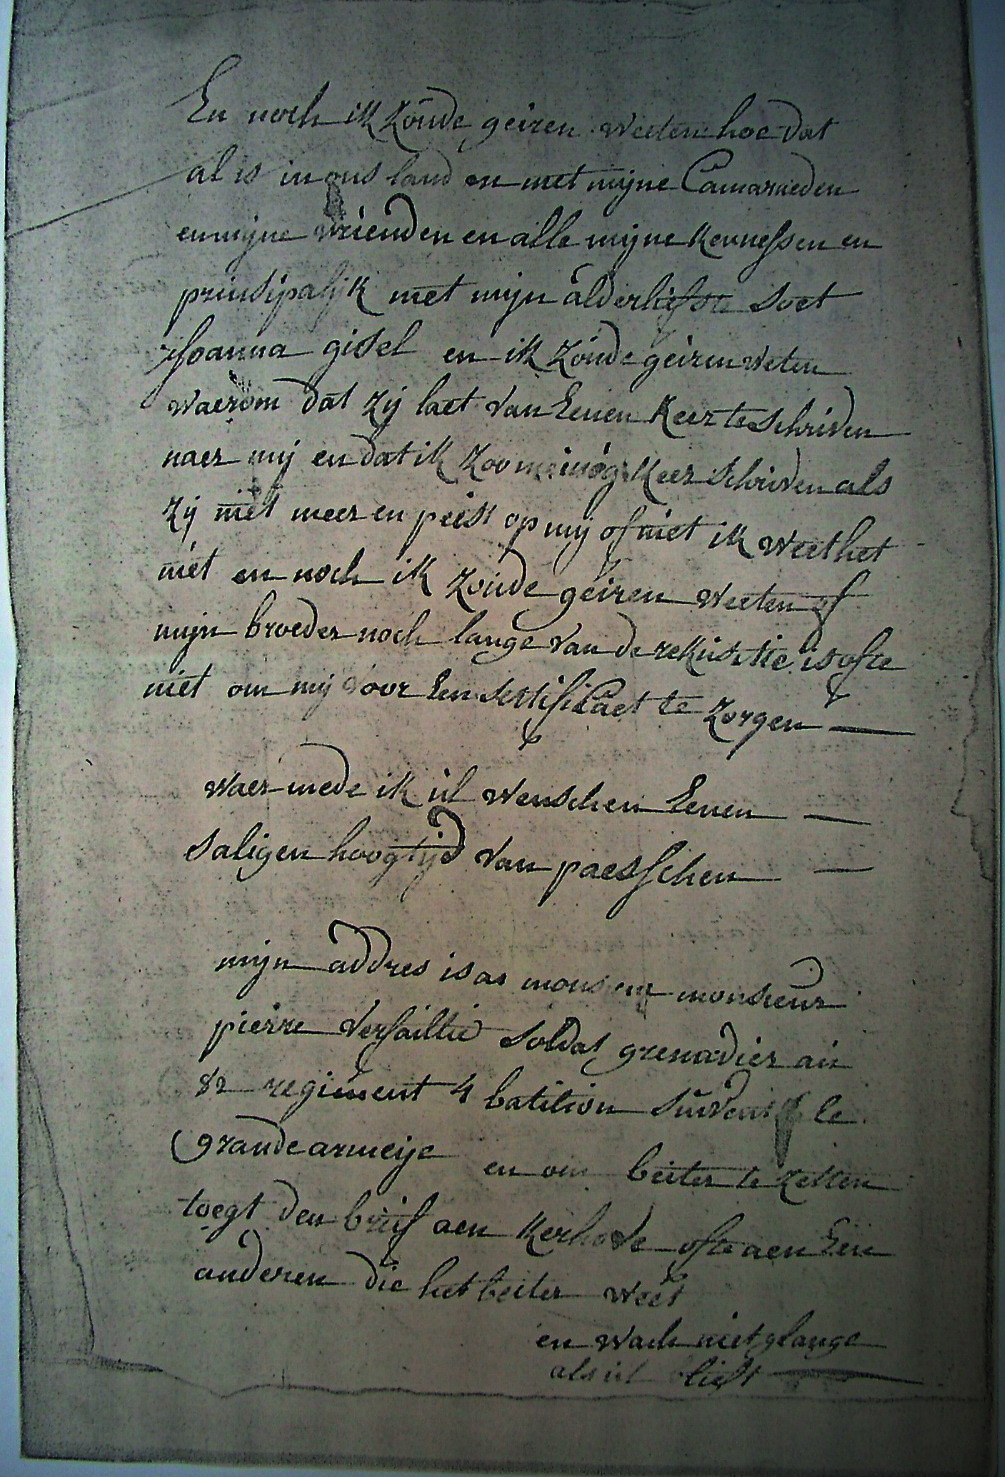 En noch ik zoúde geiren weeten hoe dat
al is in ons land en met mijne Camaraeden
en mijne vrienden en alle mijne kennessen en
prinsipalijk met mijn alderliefste soet
Joanna gisel en ik zoúde geiren weten
waerom dat zij laet van Eenen keer te schriven
naer mij en dat ik zoo menig keer schriven als
zij niet meer en peist op mij of niet ik weet het
niet en noch ik zoúde geiren weeten of
mijn broeder noch lange van de rekisitie is ofte
niet om mij voor Een sertifiCaet te zorgen
waer mede ik úl wenschen Eenen
saligen hoogtijd van paesschen
mijn addres is as monsieur monsieur
pierre versaillie soldat grenadier aú
82 regiment 4 batilion le
grande armeije en om beiter te zetten
toegt den brief aen kerhove ofte aen Een
anderen die het beiter weet
en wach niet lange
als úl blieft